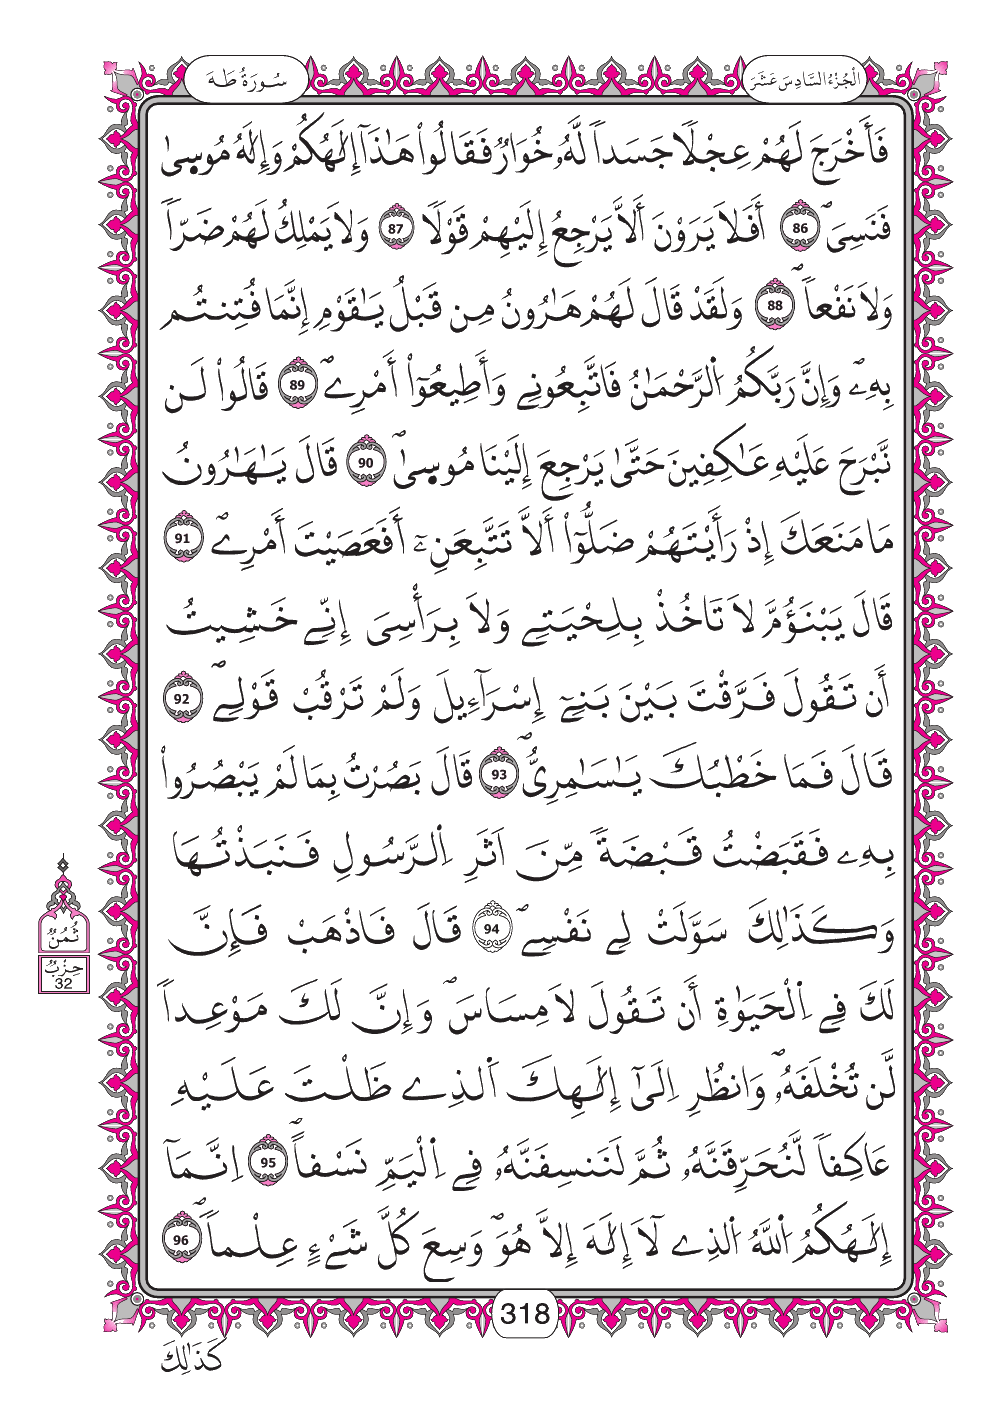 الْجُزْءُ السَّادِسَ عَشَرَ
سُورَةُ طَهَ
فَأَخْرَجَ لَهُمْ عِجْلًا جَسَداً لَّهُۥ خُوَارٌ فَقَالُواْ هَٰذَآ إِلَٰهُكُمْ وَإِلَٰهُ مُوسِىٰ
فَنَسِيَ ۖ 86 أَفَلَا يَرَوْنَ أَلَّا يَرْجِعُ إِلَيْهِمْ قَوْلًا 87 وَلَا يَمْلِكُ لَهُمْ ضَرّاً
وَلَا نَفْعاً ۖ 88 وَلَقَدْ قَالَ لَهُمْ هَٰرُونُ مِن قَبْلُ يَٰقَوْمِ إِنَّمَا فُتِنتُم
بِهِۦ ۖ وَإِنَّ رَبَّكُمُ اُلرَّحْمَٰنُ فَاتَّبِعُونِے وَأَطِيعُوٓاْ أَمْرِے ۖ 89 قَالُواْ لَن
نَّبْرَحَ عَلَيْهِ عَٰكِفِينَ حَتَّىٰ يَرْجِعَ إِلَيْنَا مُوسِىٰ ۖ 90 قَالَ يَٰهَٰرُونُ
مَا مَنَعَكَ إِذْ رَأَيْتَهُمْ ضَلُّوٓاْ أَلَّا تَتَّبِعَنِۦٓ أَفَعَصَيْتَ أَمْرِے ۖ 91
قَالَ يَبْنَؤُمَّ لَا تَاخُذْ بِلِحْيَتِے وَلَا بِرَأْسِيَ إِنِّے خَشِيتُ
أَن تَقُولَ فَرَّقْتَ بَيْنَ بَنِےٓ إِسْرَآءِيلَ وَلَمْ تَرْقُبْ قَوْلِے ۖ 92
قَالَ فَمَا خَطْبُكَ يَٰسَٰمِرِيُّ ۖ 93 قَالَ بَصُرْتُ بِمَا لَمْ يَبْصُرُواْ
بِهِۦ فَقَبَضْتُ قَبْضَةً مِّنَ اَثَرِ اِلرَّسُولِ فَنَبَذْتُهَا
وَكَذَٰلِكَ سَوَّلَتْ لِے نَفْسِے ۖ 94 قَالَ فَاذْهَبْ فَإِنَّ
لَكَ فِے اِلْحَيَوٰةِ أَن تَقُولَ لَا مِسَاسَ ۖ وَإِنَّ لَكَ مَوْعِداً
لَّن تُخْلَفَهُۥ ۖ وَانظُرِ اِلَىٰٓ إِلَٰهِكَ اَلذِے ظَلْتَ عَلَيْهِ
عَاكِفاً لَّنُحَرِّقَنَّهُۥ ثُمَّ لَنَنسِفَنَّهُۥ فِے اِلْيَمِّ نَسْفاً ۖ 95 اِنَّمَآ
إِلَٰهُكُمُ اُللَّهُ اُلذِے لَآ إِلَٰهَ إِلَّا هُوَ ۖ وَسِعَ كُلَّ شَےْءٍ عِلْماً ۖ 96
ثُمُنٌ
حِزْبٌ
32
318
كَذَٰلِكَ